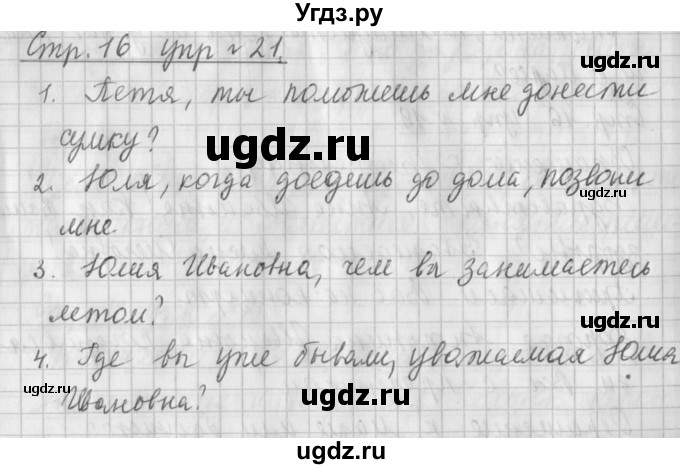 Угдз.ру
Стр. 16 упр № 21.
1. Петя, ты поможешь мне донести
сумку?
ugdz.ru
ugdz.ru
2. Юля, когда доедешь до дома, позвони
мне
3. Юлия Ивановна, чем вы занимаетесь
летом?
ugdz.ru
ugdz.ru
4. Где вы уже бывали, уважаемая Юлия
ugdz.ru
ugdz.ru
Ивановна?
ugdz.ru